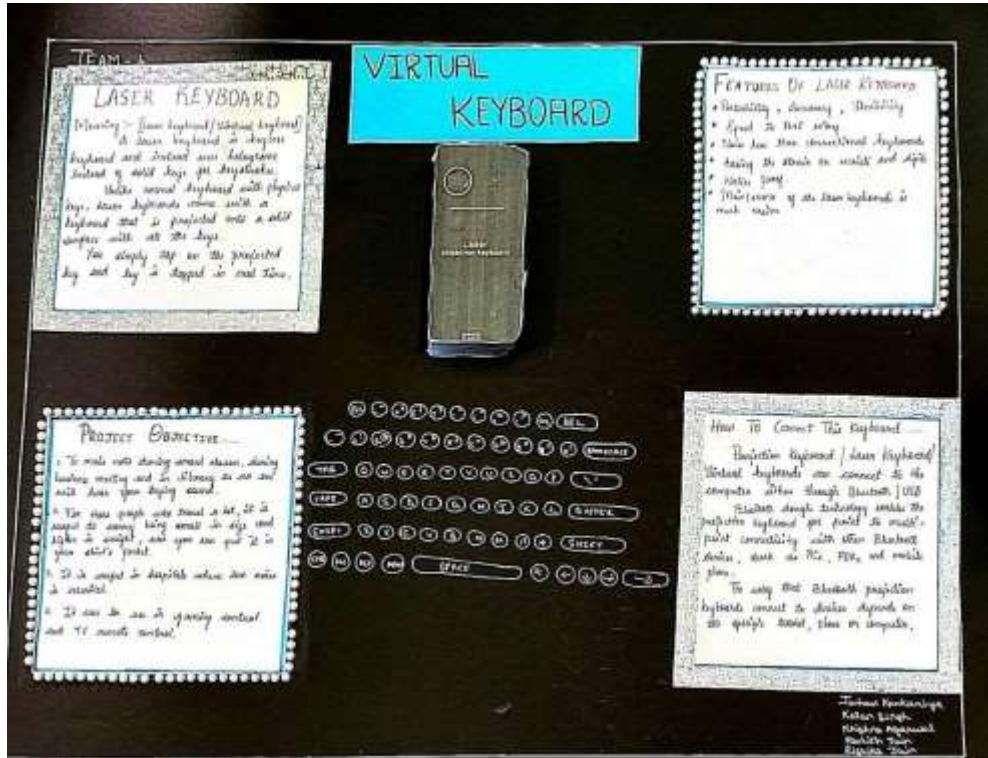 TEAM-
VIRTUAL
KEYBOARD
LASER KEYBOARD
Meaning :- [Laser keyboard / Virtual keyboard]
A laser keyboard is
keyboard and instead uses holograms
instead of solid keys for keystrokes.
Unlike normal keyboard with physical
keys, laser keyboards come with a
keyboard that is projected onto a solid
surface with all the keys.
You simply tap on the projected
key and key is tapped in real time.
LASER
PROJECTION KEYBOARD
FEATURES OF LASER KEYBOARD
Portability, Accuracy,
Noise less than conventional keyboards
the strain on wrists and
Water proof
Maintenance of the laser keyboards is
much easier
PROJECT OBJECTIVE
1. To make note during classes, during
business meeting and in library as no one
will hear your typing sound.
For those people who travel a lot, it is
useful to carry being small in size and
lighter in weight, and you can put it in
your shirt's pocket.
It is useful in hospitals where less noise
is essential.
It can be use in gaming control
and TV remote control.
DEL
BACKSPACE
TAB Q W E R T Y U I O P
CAPS A S D F G H J K L ENTER
SHIFT SHIFT
SPACE
How To Connect This Keyboard
Projection Keyboard / Laser Keyboard /
Virtual keyboards can connect to the
computer either through Bluetooth / USB
Bluetooth dongle technology enables the
projection keyboard for point to multi-
point connectivity with other Bluetooth
devices, such as PCs, PDAs and mobile
phone.
Bluetooth projection
keyboards connect to devices depends on
the specific tablet, phone or computer.
Ketan Singh
Krishna Agarwal
Jain
Jain